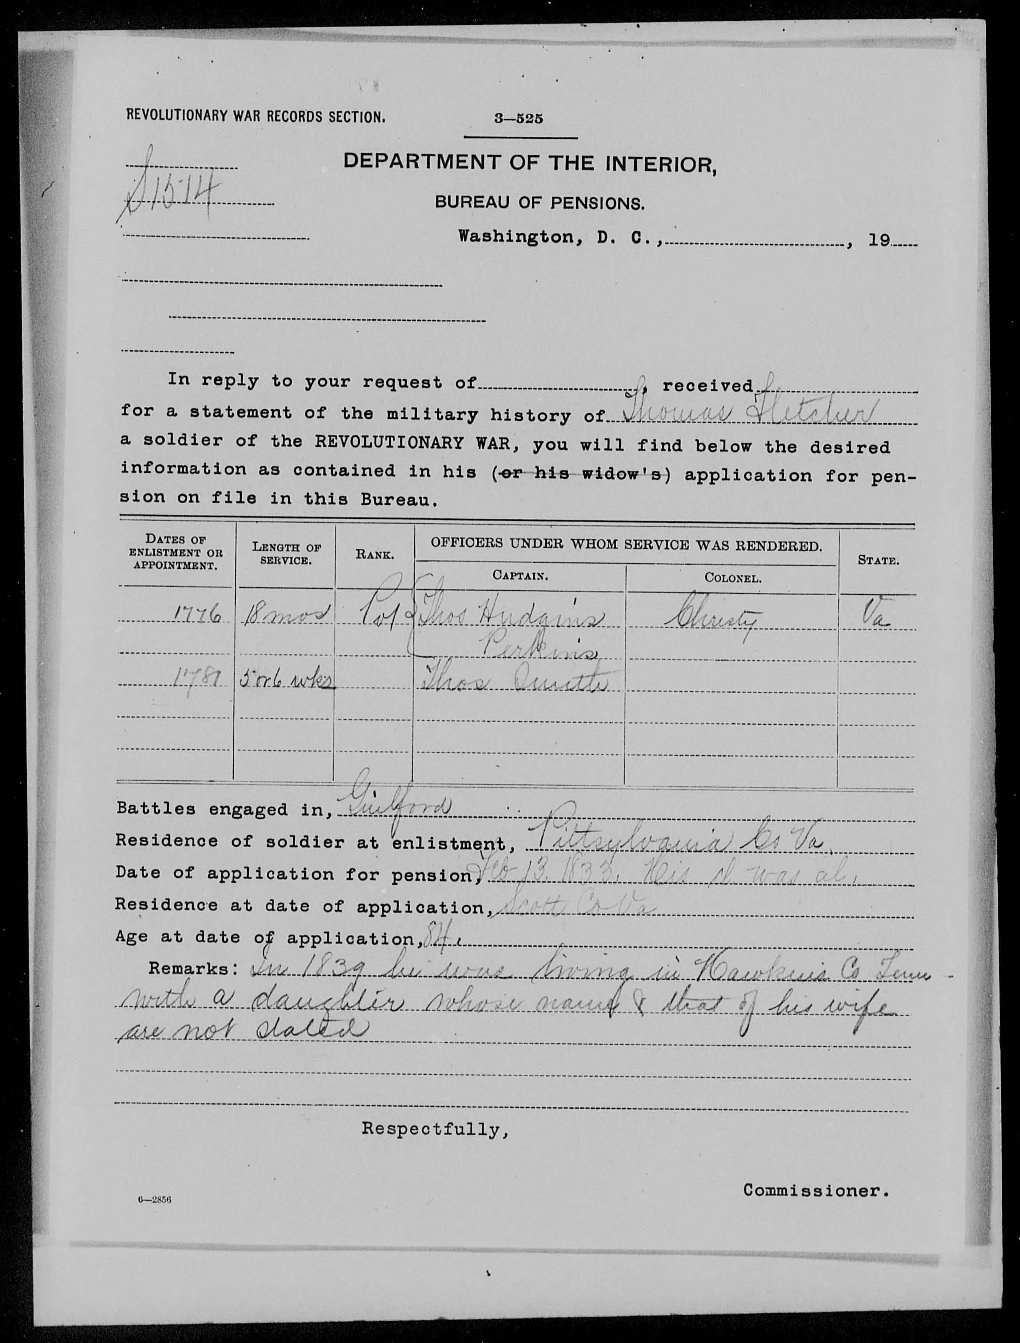 REVOLUTIONARY WAR RECORDS SECTION.
3—525
S1514
DEPARTMENT OF THE INTERIOR,
BUREAU OF PENSIONS.
Washington, D. C., , 19
In reply to your request of , received
for a statement of the military history of Thomas Fletcher
a soldier of the REVOLUTIONARY WAR, you will find below the desired
information as contained in his (or his widow's) application for pen-
sion on file in this Bureau.
DATES OF ENLISTMENT OR APPOINTMENT.
LENGTH OF SERVICE.
RANK.
OFFICERS UNDER WHOM SERVICE WAS RENDERED.
CAPTAIN.
COLONEL.
STATE.
1776 18 mos Pvt Thos Hudgins Christy Va
Perkins
1781 5 or 6 wks Thos
Battles engaged in, Guilford
Residence of soldier at enlistment, Pittsylvania Co Va.
Date of application for pension, Feb 13, 1833. His cl was al.
Residence at date of application, Scott Co Va
Age at date of application, 84.
Remarks: In 1839 he was living in Hawkins Co Tenn
with a daughter whose name & that of his wife
are not stated
Respectfully,
Commissioner.
6—2856